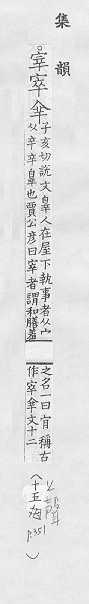 集韻
宰𡨧𠆃子亥切說文辠人在屋下執事者从宀
从辛辛辠也賈公彥曰宰者謂和膳羞
之名一曰官稱古
作𡨧𠆃文十二
上聲
(十五海)
p.351